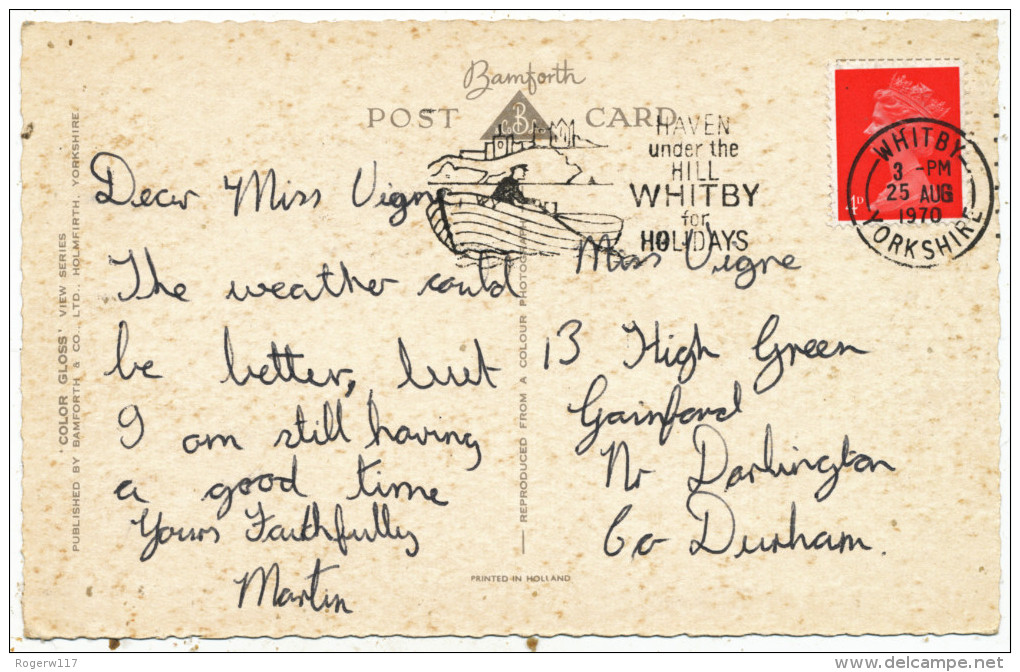 Bamforth
POST CARD
B
HAVEN
under the
HILL
WHITBY
for
HOLIDAYS
WHITBY
3 -PM
25 AUG
1970
YORKSHIRE
4D
Dear Miss Vigne
The weather could
be better, but
I am still having
a good time
Yours Faithfully
Martin
Miss Vigne
13 High Green
Gainford
Nr Darlington
Co Durham.
'COLOR GLOSS' VIEW SERIES
PUBLISHED BY BAMFORTH & CO., LTD., HOLMFIRTH, YORKSHIRE.
REPRODUCED FROM A COLOUR PHOTOGRAPH
PRINTED IN HOLLAND
Rogerw117
delcampe.net